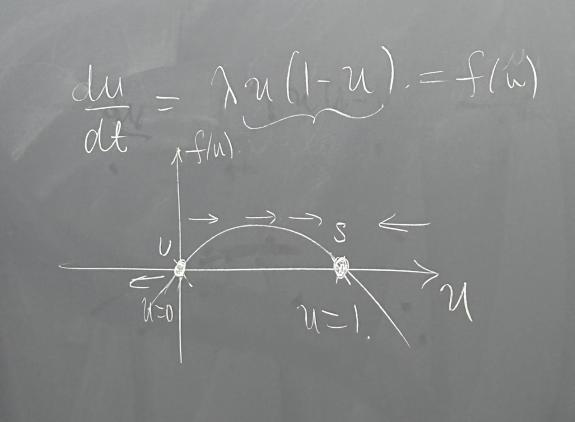 du/dt = λu(1-u). = f(u)
f(u)
U S
u=0 u=1. u